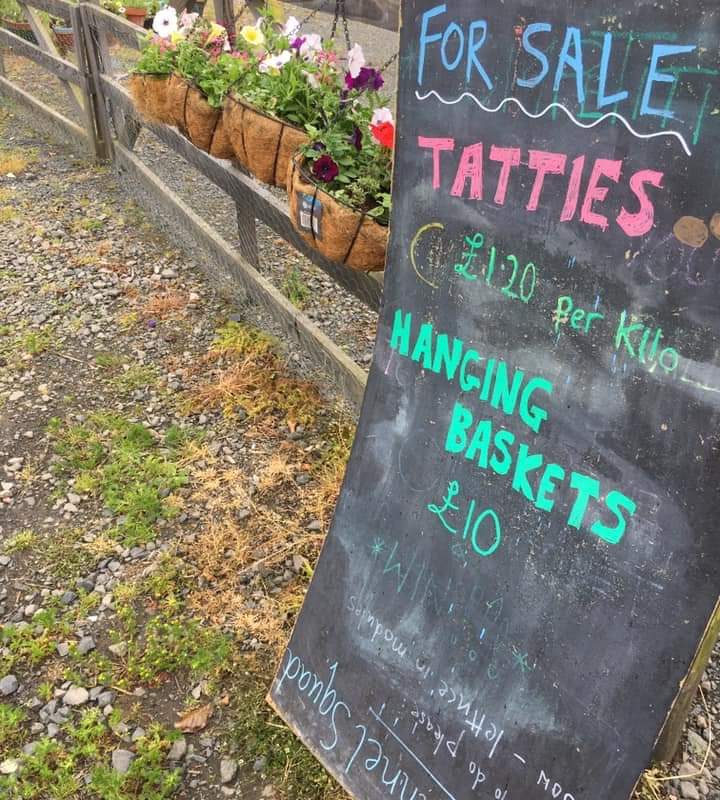 FOR SALE
TATTIES
£1.20 per Kilo
HANGING
BASKETS
£10
Squad
to do please:
- lettuce in modules